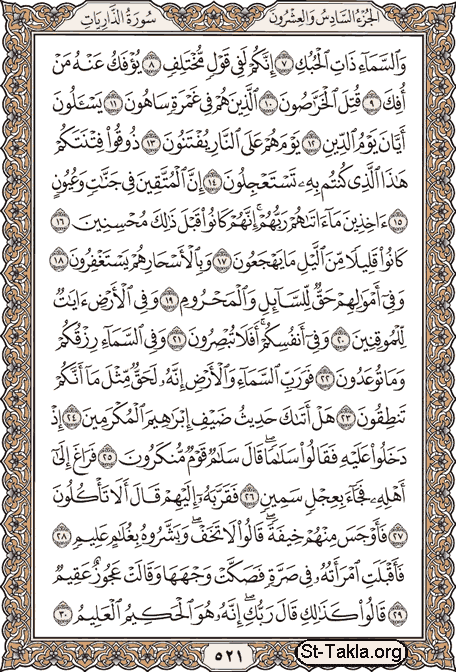 سُورَةُ الذَّارِيَاتِ
الجُزْءُ السَّادِسُ وَالعِشْرُونَ
وَالسَّمَاءِ ذَاتِ الْحُبُكِ ٧ إِنَّكُمْ لَفِي قَوْلٍ مُّخْتَلِفٍ ٨ يُؤْفَكُ عَنْهُ مَنْ
أُفِكَ ٩ قُتِلَ الْخَرَّاصُونَ ١٠ الَّذِينَ هُمْ فِي غَمْرَةٍ سَاهُونَ ١١ يَسْـَٔلُونَ
أَيَّانَ يَوْمُ الدِّينِ ١٢ يَوْمَ هُمْ عَلَى النَّارِ يُفْتَنُونَ ١٣ ذُوقُوا فِتْنَتَكُمْ
هَٰذَا الَّذِي كُنتُم بِهِۦ تَسْتَعْجِلُونَ ١٤ إِنَّ الْمُتَّقِينَ فِي جَنَّٰتٍ وَعُيُونٍ
١٥ ءَاخِذِينَ مَا ءَاتَىٰهُمْ رَبُّهُمْ ۚ إِنَّهُمْ كَانُوا قَبْلَ ذَٰلِكَ مُحْسِنِينَ ١٦
كَانُوا قَلِيلًا مِّنَ الَّيْلِ مَا يَهْجَعُونَ ١٧ وَبِالْأَسْحَارِ هُمْ يَسْتَغْفِرُونَ ١٨
وَفِي أَمْوَٰلِهِمْ حَقٌّ لِّلسَّائِلِ وَالْمَحْرُومِ ١٩ وَفِي الْأَرْضِ ءَايَٰتٌ
لِّلْمُوقِنِينَ ٢٠ وَفِي أَنفُسِكُمْ ۚ أَفَلَا تُبْصِرُونَ ٢١ وَفِي السَّمَاءِ رِزْقُكُمْ
وَمَا تُوعَدُونَ ٢٢ فَوَرَبِّ السَّمَاءِ وَالْأَرْضِ إِنَّهُۥ لَحَقٌّ مِّثْلَ مَا أَنَّكُمْ
تَنطِقُونَ ٢٣ هَلْ أَتَىٰكَ حَدِيثُ ضَيْفِ إِبْرَٰهِيمَ الْمُكْرَمِينَ ٢٤ إِذْ
دَخَلُوا عَلَيْهِ فَقَالُوا سَلَٰمًا ۖ قَالَ سَلَٰمٌ قَوْمٌ مُّنكَرُونَ ٢٥ فَرَاغَ إِلَىٰ
أَهْلِهِۦ فَجَاءَ بِعِجْلٍ سَمِينٍ ٢٦ فَقَرَّبَهُۥ إِلَيْهِمْ قَالَ أَلَا تَأْكُلُونَ
٢٧ فَأَوْجَسَ مِنْهُمْ خِيفَةً ۖ قَالُوا لَا تَخَفْ ۖ وَبَشَّرُوهُ بِغُلَٰمٍ عَلِيمٍ ٢٨
فَأَقْبَلَتِ امْرَأَتُهُۥ فِي صَرَّةٍ فَصَكَّتْ وَجْهَهَا وَقَالَتْ عَجُوزٌ عَقِيمٌ
٢٩ قَالُوا كَذَٰلِكِ قَالَ رَبُّكِ ۖ إِنَّهُۥ هُوَ الْحَكِيمُ الْعَلِيمُ ٣٠
٥٢١
St-Takla.org